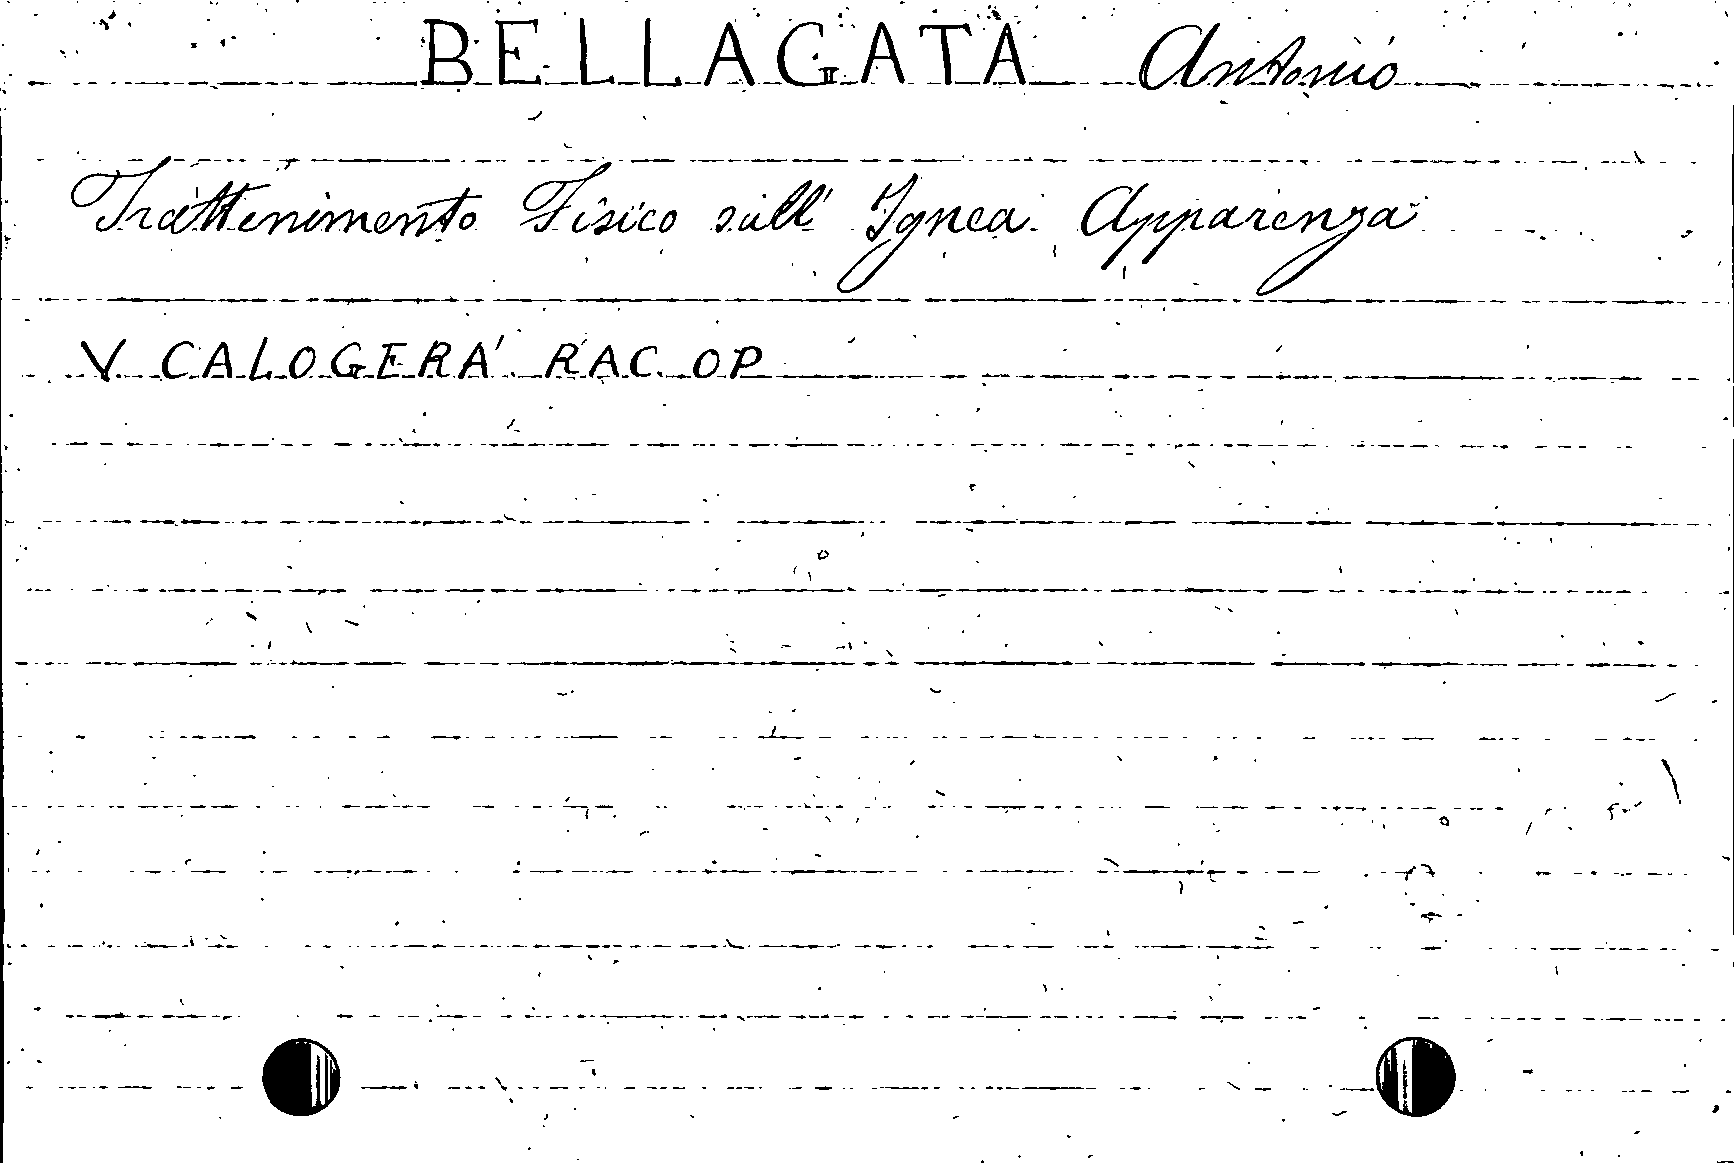 BELLAGATA Antonio
Trattenimento Fisico sull' Ignea Apparenza
V CALOGERA' RAC. OP